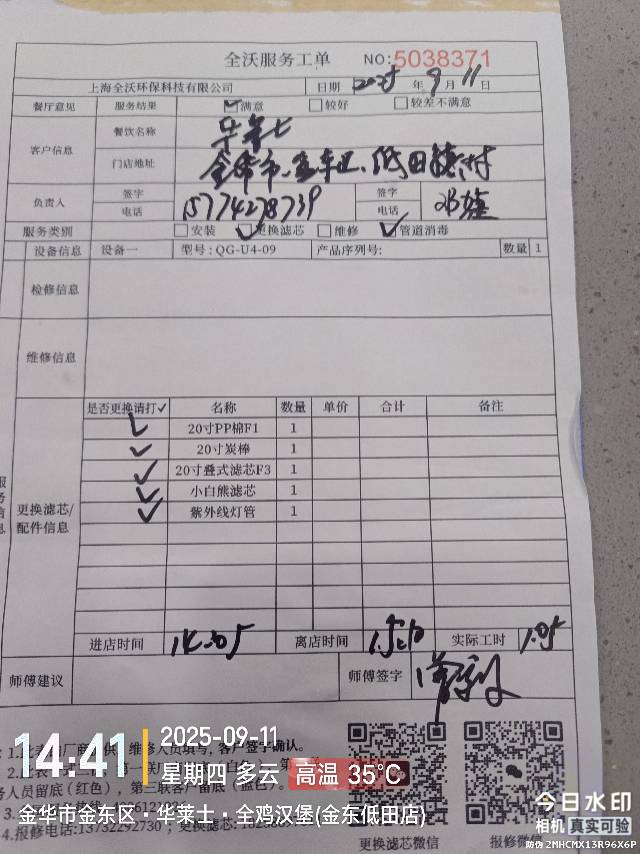 全沃服务工单 NO:5038371
上海全沃环保科技有限公司 日期 2025 年 9 月 11 日
餐厅意见 服务结果 ☑满意 □较好 □较差不满意
客户信息 餐饮名称 华莱士
门店地址 金华市金东区低田镇村
负责人 签字 签字
电话 15774278739 电话 邓雄
服务类别 □安装 ☑更换滤芯 □维修 ☑管道消毒
设备信息 设备一 型号: QG-U4-09 产品序列号: 数量 1
检修信息
维修信息
更换滤芯/配件信息 是否更换请打✓ 名称 数量 单价 合计 备注
✓ 20寸PP棉F1 1
✓ 20寸炭棒 1
✓ 20寸叠式滤芯F3 1
✓ 小白熊滤芯 1
✓ 紫外线灯管 1
进店时间 14:05 离店时间 15:10 实际工时 1.05
师傅建议 师傅签字
14:41 2025-09-11
星期四 多云 高温 35℃
金华市金东区·华莱士·全鸡汉堡(金东低田店)
客户签字确认。
4.报修电话:13732292730
更换滤芯微信 报修微信
今日水印
相机 真实可验
防伪 2MHCMX13R96X6P